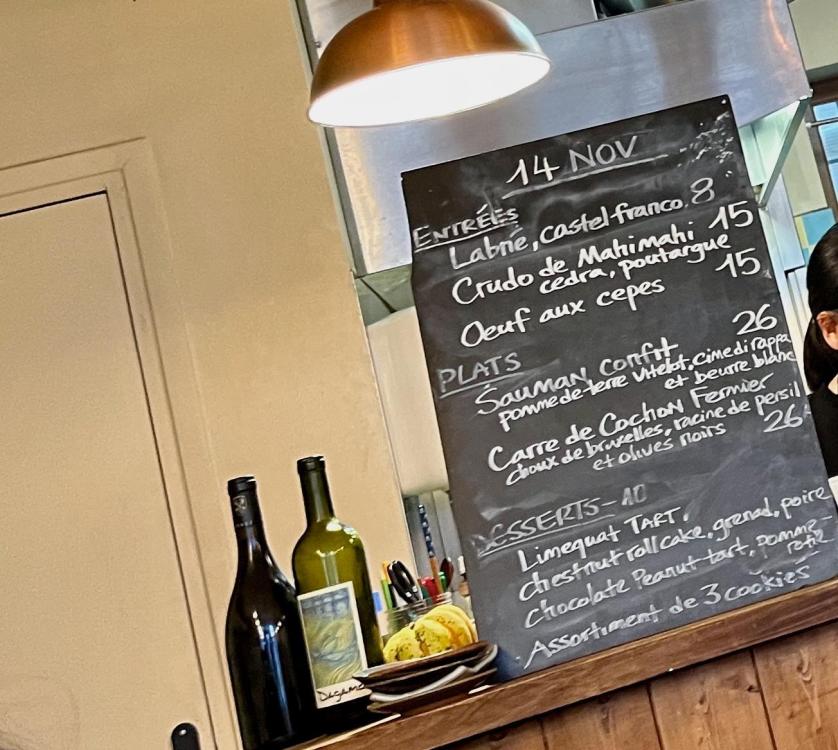 14 NOV
ENTRÉES
Labné, castelfranco 8
Crudo de Mahimahi 15
cedra, poutargue
Oeuf aux cepes 15
PLATS
Sauman confit 26
pomme de terre Vitelot, cime di rappa
et beurre blanc
Carre de Cochon Fermier
choux de bruxelles, racine de persil
et olives noirs 26
DESSERTS - 10
Limequat TART,
chestnut roll cake, grenad, poire
chocolate Peanut tart, pomme
rotie
Assortiment de 3 cookies